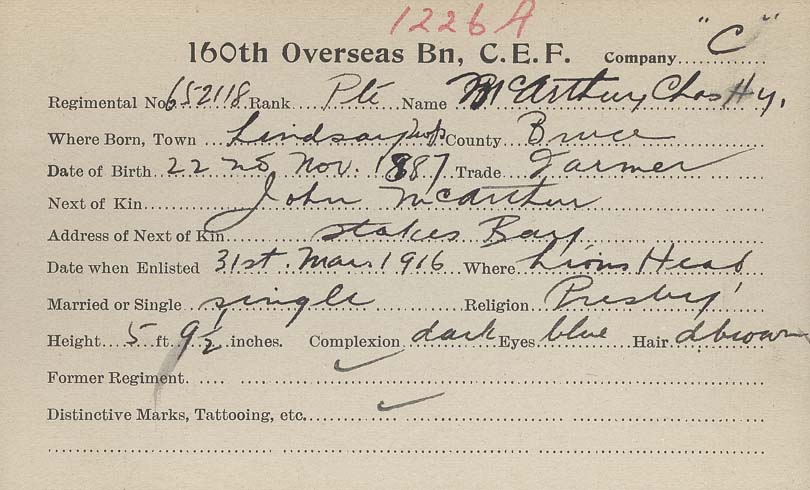 1226A
160th Overseas Bn, C.E.F. Company "C"
Regimental No 652118 Rank Pte Name McArthur, Chas Hy.
Where Born, Town Lindsay Twp County Bruce
Date of Birth 22nd Nov. 1887 Trade Farmer
Next of Kin John McArthur
Address of Next of Kin Stokes Bay
Date when Enlisted 31st. Mar. 1916 Where Lions Head
Married or Single single Religion Presby'
Height 5 ft. 9½ inches. Complexion dark Eyes blue Hair dbrown
Former Regiment ✓
Distinctive Marks, Tattooing, etc. ✓